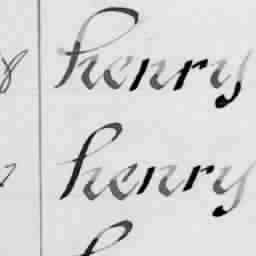 henry
henry